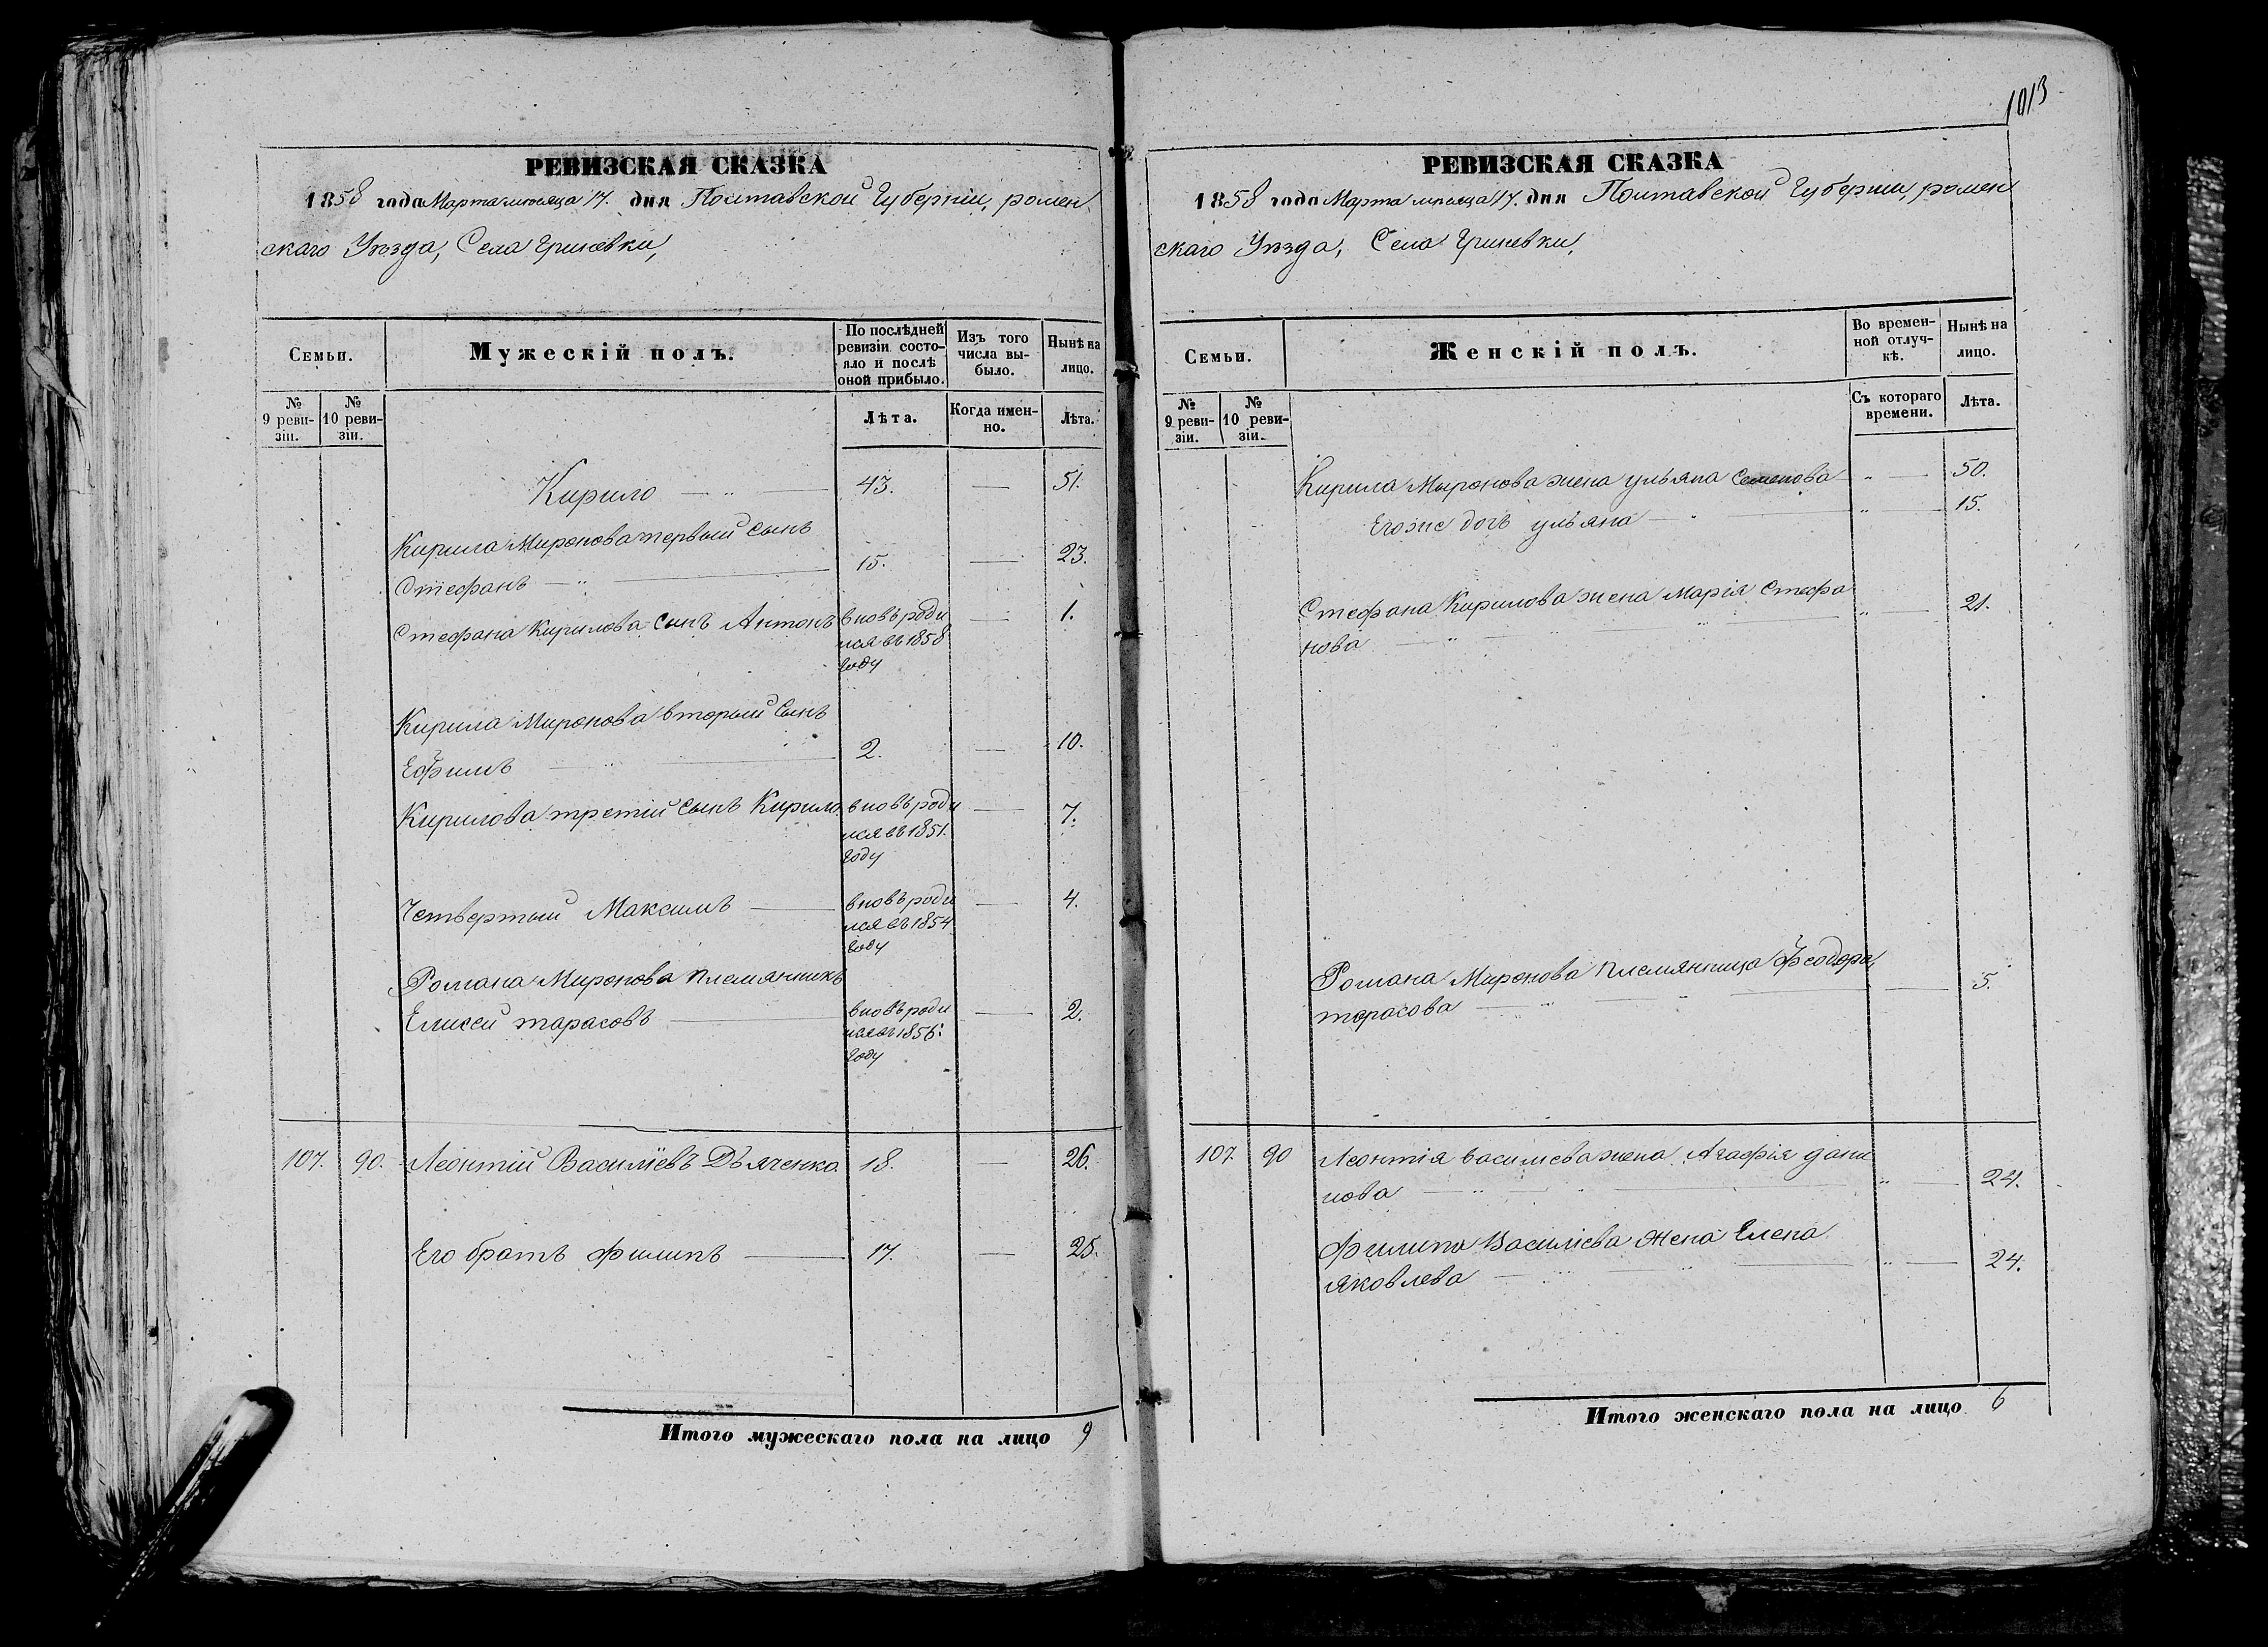 1013
РЕВИЗСКАЯ СКАЗКА
1858 года Марта месяца 17. дня Полтавской Губернiи, ромен
скаго Уѣзда, Села Гриневки,
Семьи.
Мужескiй полъ.
По послѣдней ревизiи состо-яло и послѣ оной прибыло.
Изъ того числа вы-было.
Нынѣ на лицо.
№ 9 реви-зiи.
№ 10 реви-зiи.
Лѣта.
Когда имен-но.
Лѣта.
Кирило — „ — 43. — 51.
Кирила Миронова первый сынъ
Стефанъ — „ — 15. — 23.
Стефана Кирилова сынъ Антонъ вновь роди — 1.
лся въ 1858
году
Кирила Миронова вторый сынъ
Ефимъ — „ — 2. — 10.
Кирилова третiй сынъ Кирило вновь роди — 7.
лся въ 1851.
году
Четвертый Максимъ — вновь роди — 4.
лся въ 1854
году
Романа Миронова племянникъ
Елисей тарасовъ — вновь роди — 2.
лся въ 1856.
году
107. 90. Леонтiй Василiевъ Дьяченко 18. — 26.
Его братъ филипъ — 17. — 25.
Итого мужескаго пола на лицо 9
РЕВИЗСКАЯ СКАЗКА
1858 года Марта месяца 17. дня Полтавской Губернiи, ромен
скаго Уѣзда, Села Гриневки,
Семьи.
Женскiй полъ.
Во времен-ной отлуч-кѣ.
Нынѣ на лицо.
№ 9 реви-зiи.
№ 10 реви-зiи.
Съ котораго времени.
Лѣта.
Кирила Миронова жена ульяна Семенова „ — 50.
Егоже дочь ульяна — „ — „ — 15.
Стефана Кирилова жена Марiя Стефа
нова — „ — „ — 21.
Романа Миронова племянница Феодора
тарасова — „ — 5.
107. 90 Леонтiя василiева жена Агафiя дани
лова — „ — „ — 24.
Филипа Василiева жена Елена
яковлева — „ — „ — 24.
Итого женскаго пола на лицо 6